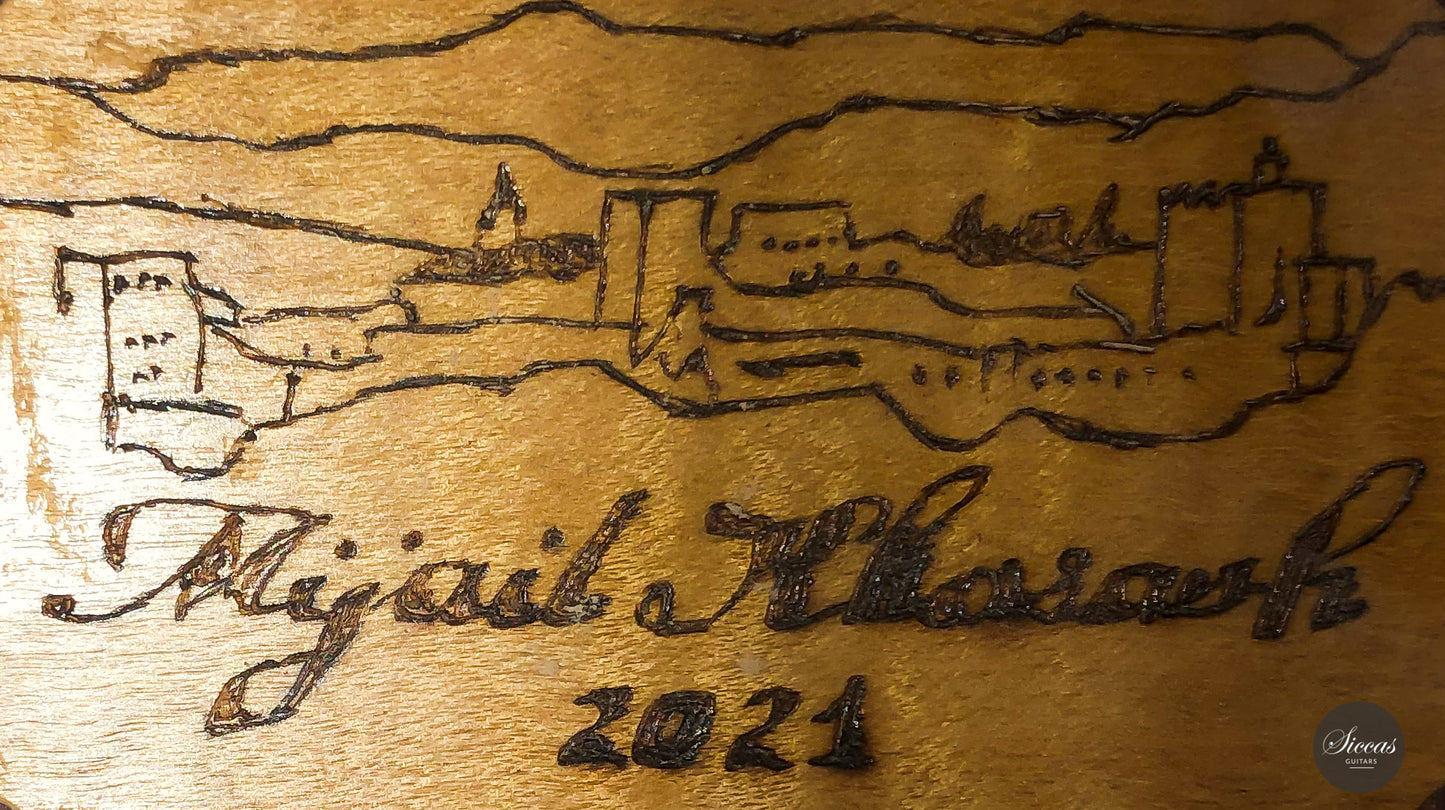 Mijail Kharash
2021
Siccas
GUITARS